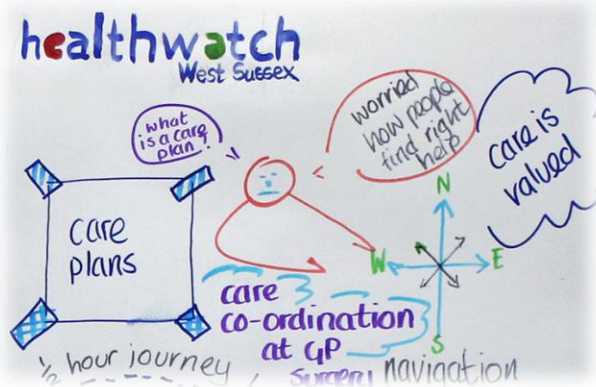 healthwatch
West Sussex
what
is a care
plan?
worried
how people
find right
help
care is
valued
care
plans
N
W
E
S
care
co-ordination
at GP
surgery
1/2 hour journey
navigation